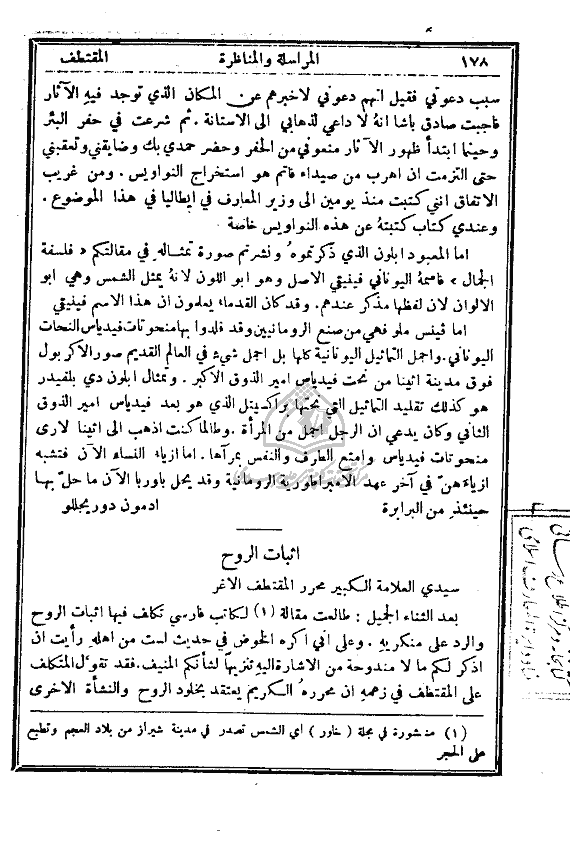 ١٧٨ المراسلة والمناظرة المقتطف
سبب دعوتي فقيل انهم دعوني لاخبرهم عن المكان الذي توجد فيهِ الآثار
فاجبت صادق باشا انهُ لا داعي لذهابي الى الاستانة . ثم شرعت في حفر البئر
وحينما ابتدأ ظهور الآثار منعوني من الحفر وحضر حمدي بك وضايقني وتعقبني
حتى التزمت ان اهرب من صيداء فاتم هو استخراج النواويس . ومن غريب
الاتفاق انني كتبت منذ يومين الى وزير المعارف في ايطاليا في هذا الموضوع .
وعندي كتاب كتبتهُ عن هذه النواويس خاصة
اما المعبود ابلون الذي ذكرتموهُ ونشرتم صورة تمثاله في مقالتكم « فلسفة
الجمال » فاسمهُ اليوناني فينيقي الاصل وهو ابو اللون لانهُ يمثل الشمس وهي ابو
الالوان لان لفظها مذكر عندهم. وقد كان القدماء يعلمون ان هذا الاسم فينيقي
اما ڤينس ملو فهي من صنع الرومانيين وقد قلدوا بها منحوتات فيدياس النحات
اليوناني. واجمل التماثيل اليونانية كلها بل اجمل شيء في العالم القديم صور الاكربول
فوق مدينة اثينا من نحت فيدياس امير الذوق الاكبر . وتمثال ابلون دي بلفيدر
هو كذلك تقليد التماثيل التي نحتها براكسيتل الذي هو بعد فيدياس امير الذوق
الثاني وكان يدعي ان الرجل اجمل من المرأة . وطالما كنت اذهب الى اثينا لارى
منحوتات فيدياس وامتع الطرف والنفس بمرآها. اما ازياء النساء الآن فتشبه
ازياءهنّ في آخر عهد الامبراطورية الرومانية وقد يحل باوربا الآن ما حلّ بها
حينئذٍ من البرابرة ادمون دوريجللو
اثبات الروح
سيدي العلامة الكبير محرر المقتطف الاغر
بعد الثناء الجميل : طالعت مقالة (١) لكاتب فارسي تكلف فيها اثبات الروح
والرد على منكريهِ . وعلى اني اكره الخوض في حديث لست من اهلهِ رأيت ان
اذكر لكم ما لا مندوحة من الاشارة اليهِ تنزيهاً لشأنكم المنيف. فقد تقوّل المتكلف
على المقتطف في زعمهِ ان محررهُ الكريم يعتقد بخلود الروح والنشأة الاخرى
(١) منشورة في مجلة ( خاور ) اي الشمس تصدر في مدينة شيراز من بلاد العجم وتطبع
على الحجر